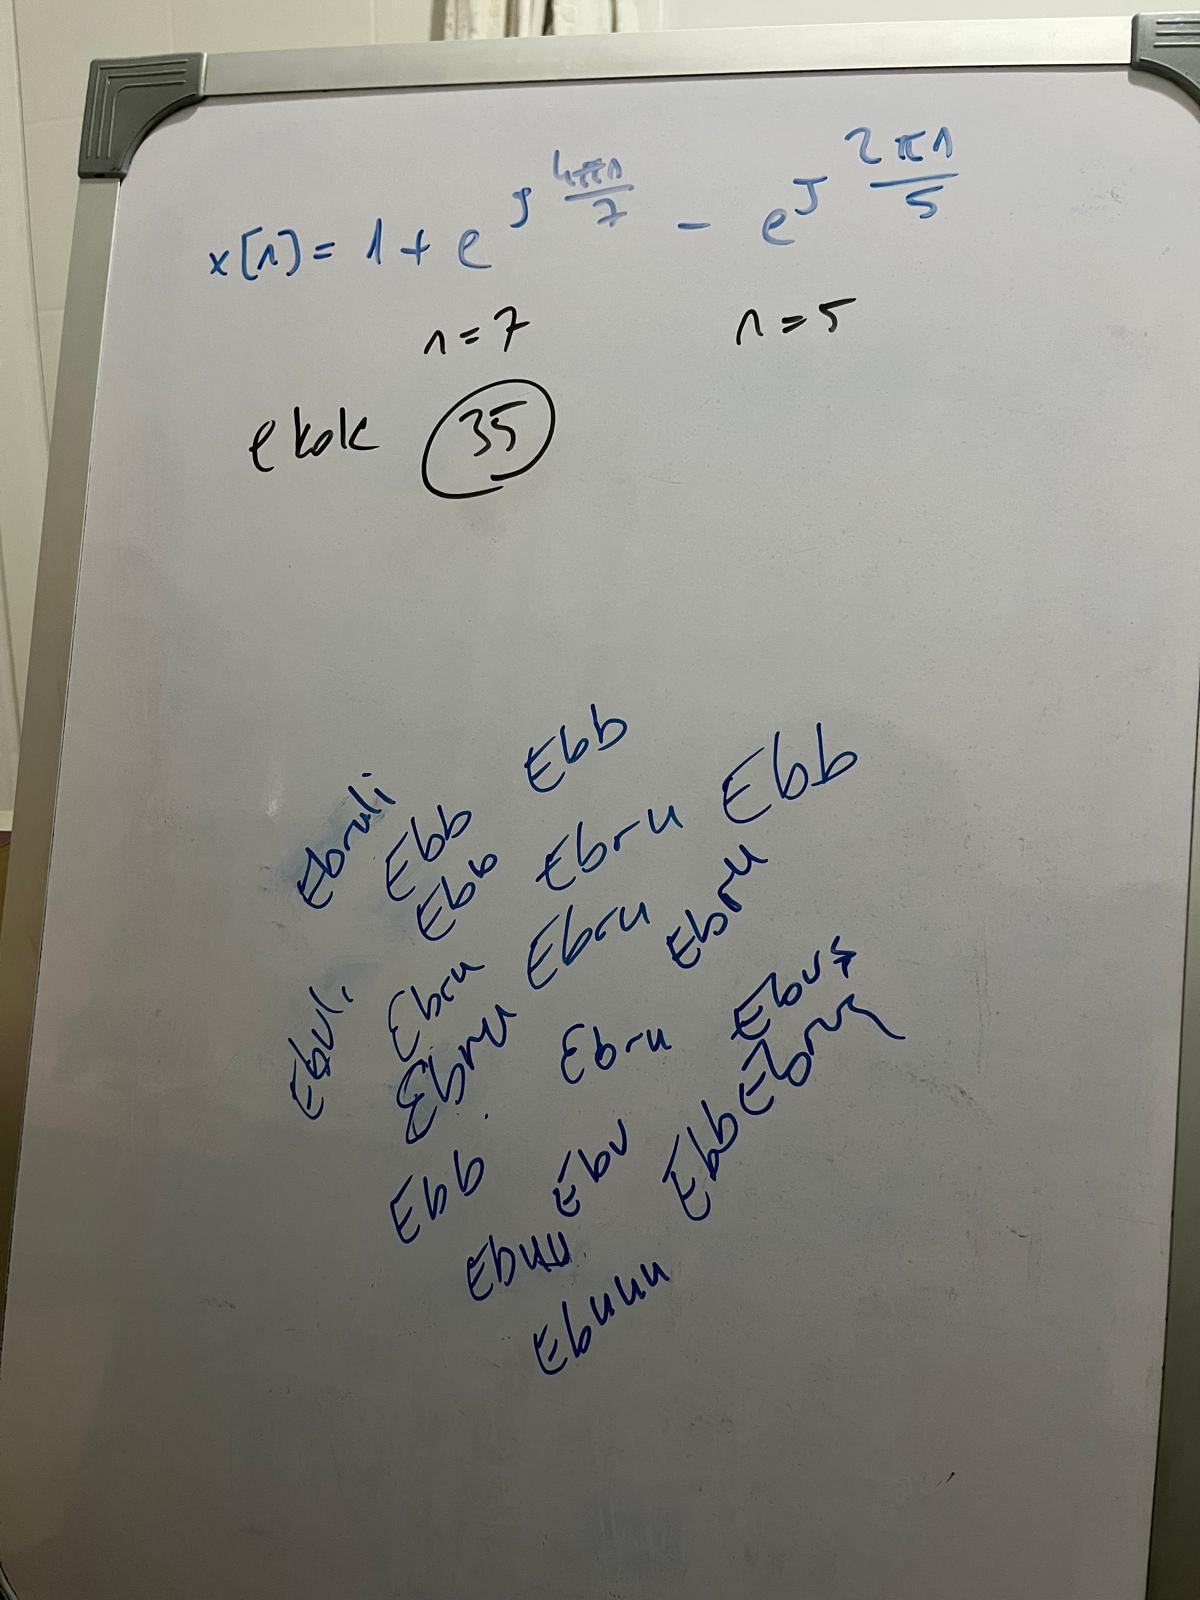 x[n] = 1 + e^j 4πn/7 - e^j 2πn/5
n=7 n=5
ekok 35
Ebruli Ebb Ebb
Ebb Ebru Ebb
Ebuli Ebru Ebru Ebru
Ebru Ebru Ebuş
Ebb Ebu Ebb Ebruş
Ebuu
Ebuuu